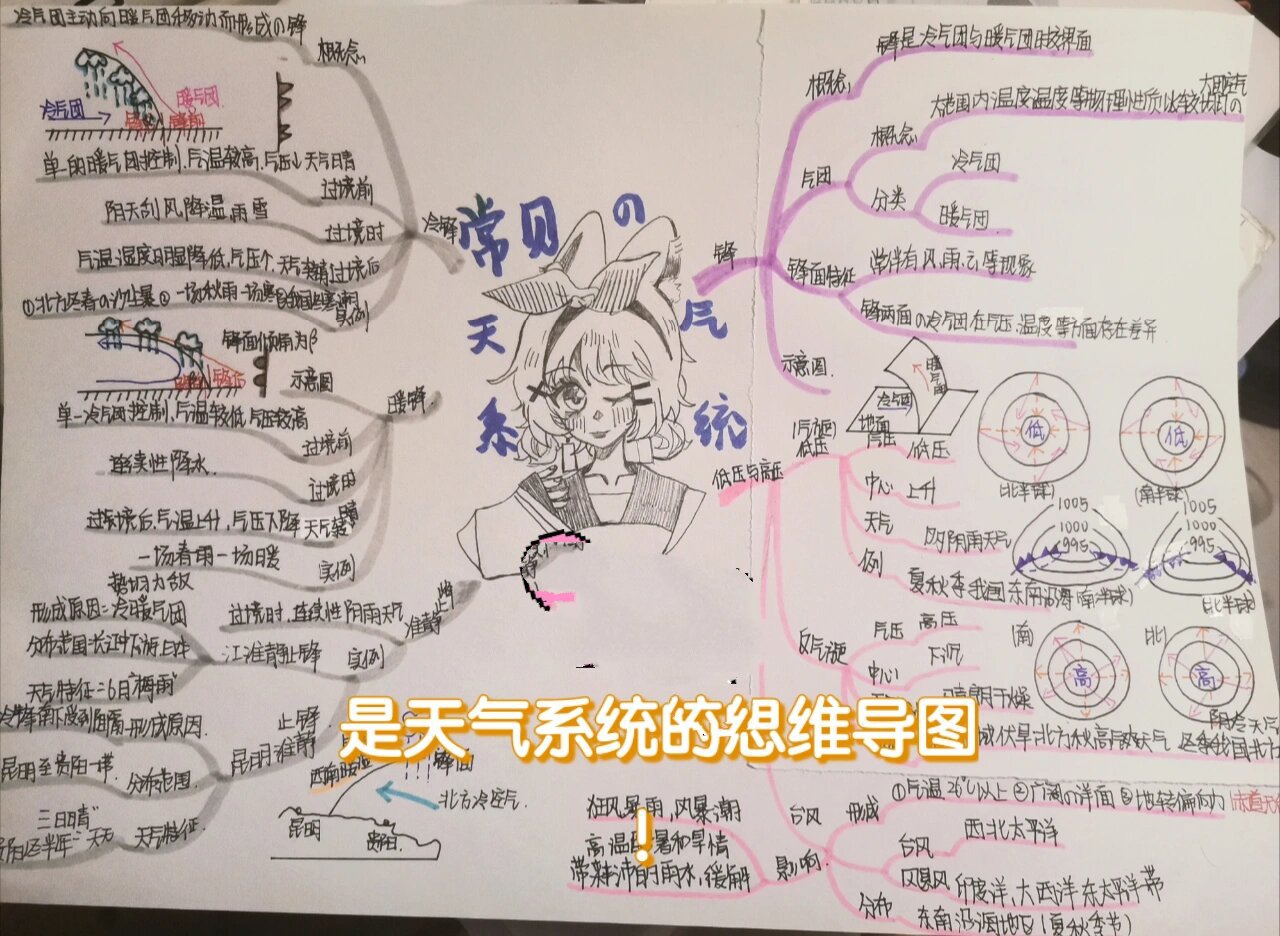 常见の
天气
系统
冷锋
概念
冷气团主动向暖气团移动而形成の锋
冷气团
暖气团
过境前
单一的暖气团控制,气温较高,气压↓天气晴
过境时
阴天刮风降温雨雪
过境后
气温湿度明显降低,气压个,天气转晴
实例
①北方冬春の沙尘暴②一场秋雨一场寒
暖锋
示意图
锋面倾角为β
锋后
过境前
单一冷气团控制,气温较低气压较高
过境时
连续性降水
过境后,气温上升,气压下降天气转晴
实例
一场春雨一场暖
准静止锋
过境时,连续性阴雨天气
实例
江淮静止锋
形成原因:冷暖气团
势均力敌
分布范围
天气特征:6月"梅雨"
昆明准静止锋
形成原因
分布范围
昆明至贵阳一带
天气特征
三日晴"
昆明
贵阳
锋面
北方冷空气
锋
概念
锋是冷气团与暖气团的交界面
气团
概念
大范围内温度湿度等物理性质比较均匀の
大团空气
分类
冷气团
暖气团
锋面特征
常伴有风,雨,云等现象
锋两面の冷气团在气压、温度等方面存在差异
示意图
暖气团
冷气团
地面
低压与高压
低压
(气旋)
气压
低压
中心
上升
天气
多阴雨天气
例
夏秋季我国东南沿海
低
(北半球)
低
(南半球)
1005
1000
995
(南半球)
1005
1000
995
北半球
反气旋
气压
高压
中心
下沉
晴朗干燥
伏旱,北方秋高气爽天气
南
高
北
高
阴冷天气
是天气系统的思维导图
!
台风
形成
①气温26℃以上②广阔の洋面③地转偏向力
影响
狂风暴雨,风暴潮
带来丰沛的雨水,缓解
高温酷暑和旱情
分布
台风
西北太平洋
飓风
印度洋,大西洋东太平洋带
东南沿海地区(夏秋季节)